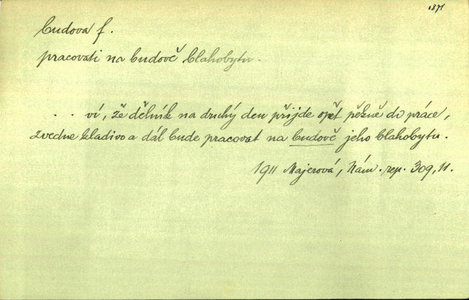 1871
budova f.
pracovati na budově blahobytu.
... ví, že dělník na druhý den přijde opět pěkně do práce,
zvedne kladivo a dál bude pracovat na budově jeho blahobytu.
1911 Majerová, Nám. rep. 309, 11.